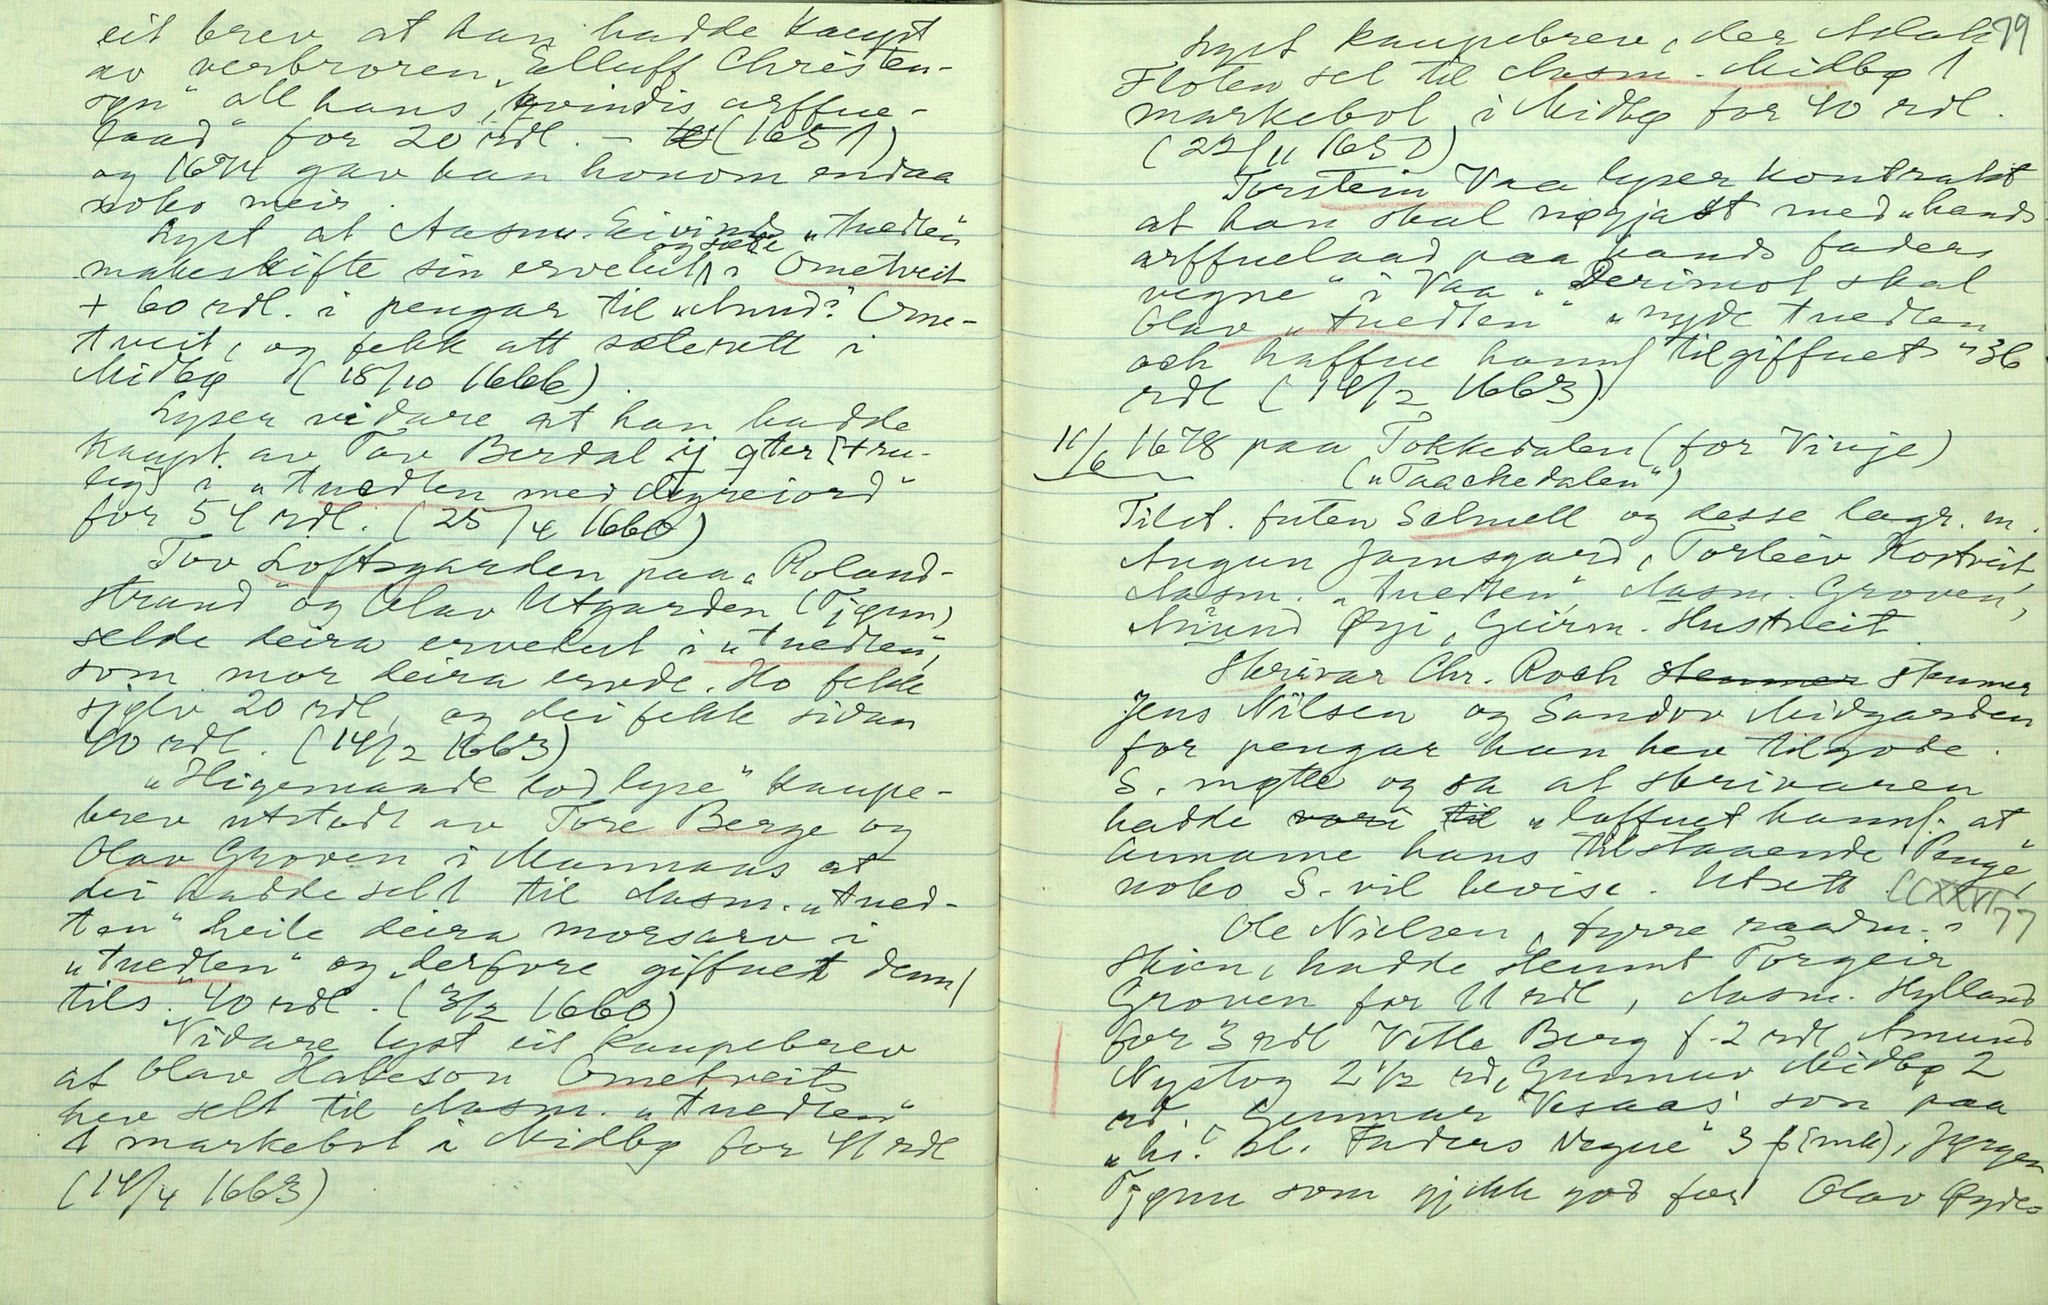 eit brev at han hadde kaupt
av verbroren "Elluff Christen-
søn" all hans "qvindis arffue-
laad" for 20 rdl. - (1651)
og 1674 gav han honom endaa
noko meir.
Lyst at Aasm. Eivinds. "tuedten"
og sæde
makeskifte sin ervelut i Ometveit
+ 60 rdl. i pengar til "Amund" Ome-
tveit, og fekk att sæterett i
Midbø (18/10 1666).
Lyser vidare at han hadde
kaupt av Tov Berdal ij øter [tru-
leg] i "tuedten med Øygreiord"
for 54 rdl. (25/4 1660)
Tov Loftsgarden paa "Roland-
strand" og Olav Utgarden (Tjønn)
selde deira ervelut i "tuedten",
som mor deira ervde. Ho fekk
sjølv 20 rdl, og dei fekk sidan
40 rdl. (14/2 1663)
"Sligemaade lod lyse" kaupe-
brev utstedt av Tore Berge og
Olav Groven i Mannaas at
dei hadde selt til Aasm. "tued-
ten" heile deira morsarv i
"tuedten" og "derfore giffuet dennf
tils. 40 rdl. (3/2 1660)
Vidare lyst eit kaupebrev
at Olav Halvson Ometveit
hev selt til Aasm. "tuedten"
1 markebol i Midbø for 41 rdl
(14/4 1663)
79
Lyst kaupebrev, der Aslak
Floten sel til Aasm. Midbø 1
markebol i Midbø for 40 rdl.
(22/11 1650)
Torstein Vaa lyser kontrakt
at han skal nøgjast med "hands
arffuelaad paa hands faders
vegne" i Vaa. Derimot skal
Olav "tuedten" "nyde tuedten
och haffue hannf tilgiffuet" 36
rdl (14/2 1663)
11/6 1678 paa Tokkedalen (for Vinje)
("Taackedalen")
Tilst. futen Selmell og desse lagr. m.
Augun Jamsgard, Torleiv Kostveit,
Aasm. "tuedten", Aasm. Groven,
Åmund Øyi, Geirm. Hustveit.
Skrivar Chr. Roch stemner
Jens Nilsen og Sandov Midgarden
for pengar han hev tilgode.
S. møtte og sa at skrivaren
hadde "loffuet hannf. at
annamme hans tilstaaende Penge",
noko S. vil bevise. Utsett.
CCXXVI 77
Ole Nielsen, fyrre raadm. i
Skien, hadde stemnt Torgeir
Groven for 11 rdl, Aasm. Hylland
for 3 rdl Vetle Berg f. 2 rdl, Amund
Nystog 2 1/2 rd, Gunnuv Midbø 2
rd. Gunnar Vesaas' son paa
"hs. Sl. Faders Vegne" 3 (mk), Jørgen
Tjønn som gjekk god for Olav Øydes